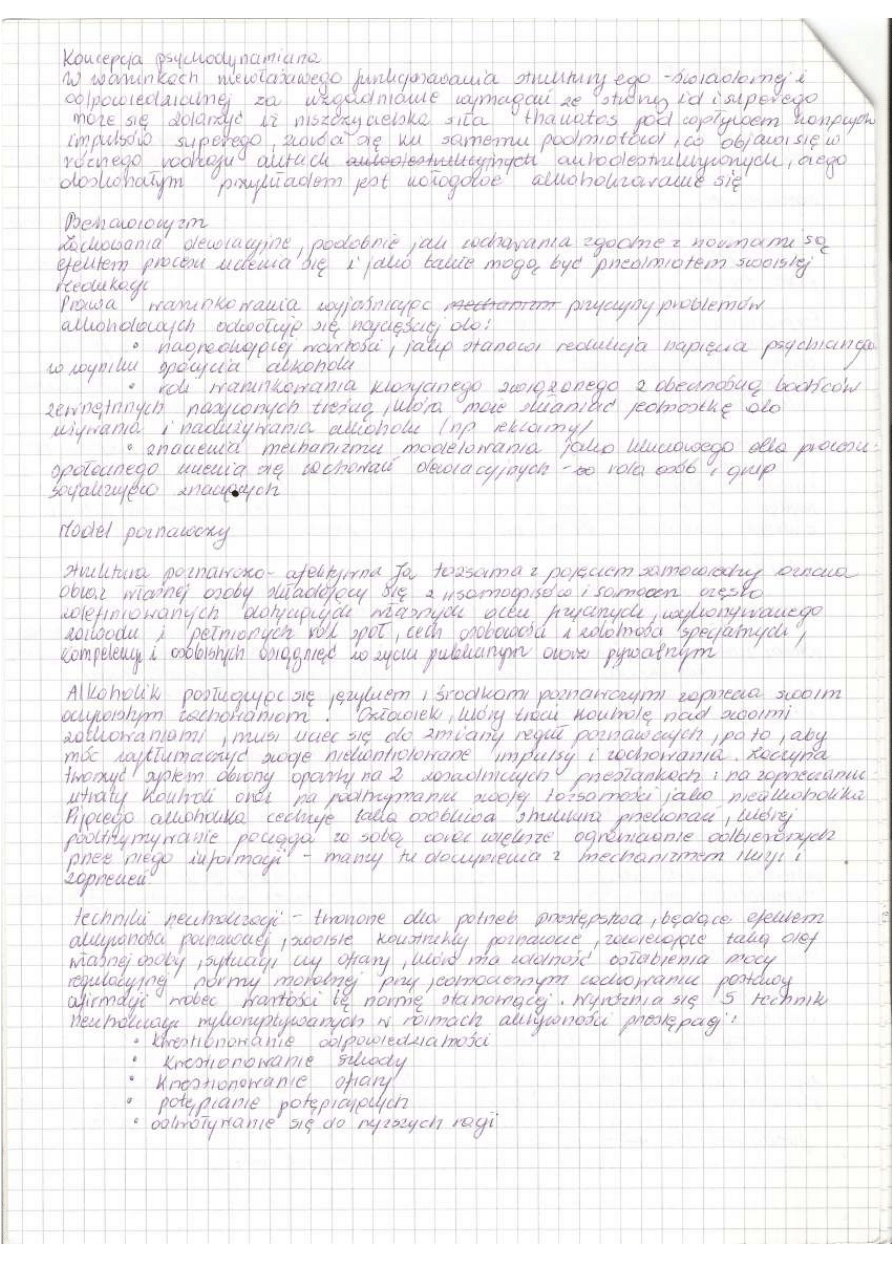 Koncepcja psychodynamiczna
W warunkach niewłaściwego funkcjonowania struktury ego - świadomej i
odpowiedzialnej za uzgadnianie wymagań ze strony id i superego
może się zdarzyć iż niszczycielska siła thanatos pod wpływem
impulsów superego, zwróci się ku samemu podmiotowi, co objawi się w
różnego rodzaju aktach autodestrukcyjnych autodestrukcyjnych, czego
doskonałym przykładem jest nałogowe alkoholizowanie się
Behawioryzm
Zachowania dewiacyjne, podobnie jak zachowania zgodne z normami są
efektem procesu uczenia się i jako takie mogą być przedmiotem swoistej
reedukacji
Prawa warunkowania wyjaśniając mechanizm przyczyny problemów
alkoholowych odwołują się najczęściej do:
• nagradzającej wartości, jaką stanowi redukcja napięcia psychicznego
w wyniku spożycia alkoholu
• roli warunkowania klasycznego związanego z obecnością bodźców
zewnętrznych nasyconych treścią, która może skłaniać jednostkę do
używania i nadużywania alkoholu /np reklamy/
• znaczenia mechanizmu modelowania jako kluczowego dla procesu
społecznego uczenia się zachowań dewiacyjnych - rola osób i grup
socjalizująco znaczących
Model poznawczy
Struktura poznawczo - afektywna Ja, tożsama z pojęciem samowiedzy oznacza
obraz własnej osoby składający się z samoopisów i samoocen często
zdefiniowanych dotyczących własnych cech fizycznych, wykonywanego
zawodu i pełnionych ról społ, cech osobowości i zdolności specjalnych,
kompetencji i osobistych osiągnięć w życiu publicznym oraz prywatnym
Alkoholik posługując się językiem i środkami poznawczymi zaprzecza swoim
oczywistym zachowaniom. Człowiek, który traci kontrolę nad swoimi
zachowaniami, musi uciec się do zmiany reguł poznawczych, po to, aby
móc wytłumaczyć swoje niekontrolowane impulsy i zachowania. Zaczyna
tworzyć system obrony oparty na 2 zasadniczych przesłankach: na zaprzeczaniu
utraty kontroli oraz na podtrzymaniu swojej tożsamości jako niealkoholika
Pijącego alkoholika cechuje taka osobliwa struktura przekonań, której
podtrzymywanie pociąga za sobą coraz większe ograniczanie odbieranych
przez niego informacji - mamy tu do czynienia z mechanizmem iluzji i
zaprzeczeń.
techniki neutralizacji - tworzone dla potrzeb przestępstwa, będące efektem
aktywności poznawczej, swoiste konstrukty poznawcze, zawierające taką def
własnej osoby, sytuacji czy ofiary, która ma zdolność osłabienia mocy
regulacyjnej normy moralnej przy jednoczesnym zachowaniu postawy
afirmacji wobec wartości tę normę stanowiącej. Wyróżnia się 5 technik
neutralizacji wykorzystywanych w ramach aktywności przestępczej:
• kwestionowanie odpowiedzialności
• kwestionowanie szkody
• kwestionowanie ofiary
• potępianie potępiających
• odwoływanie się do wyższych racji